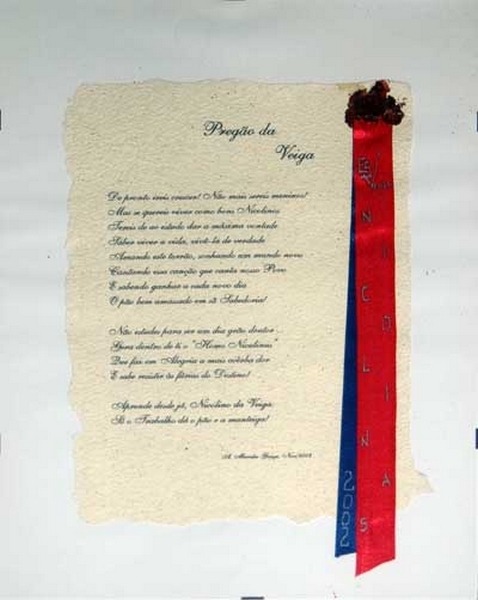 Pregão da
Veiga
De pronto ireis crescer! Não mais sereis meninos!
Mas se quereis viver como bons Nicolinos
Tereis de ao estudo dar a máxima vontade
Saber viver a vida, vivê-la de verdade
Amando este torrão, sonhando um mundo novo
Cantando essa canção que canta nosso Povo
E sabendo ganhar a cada novo dia
O pão bem amassado em sã Sabedoria!
Não estudes para ser um dia grão doutor...
Gera dentro de ti o "Homo Nicolinus"
Que faz em Alegria a mais acerba dor
E sabe resistir às fúrias do Destino!
Aprende desde já, Nicolino da Veiga:
Só o Trabalho dá o pão e a manteiga!
Nov/2002
NICOLINAS
2002